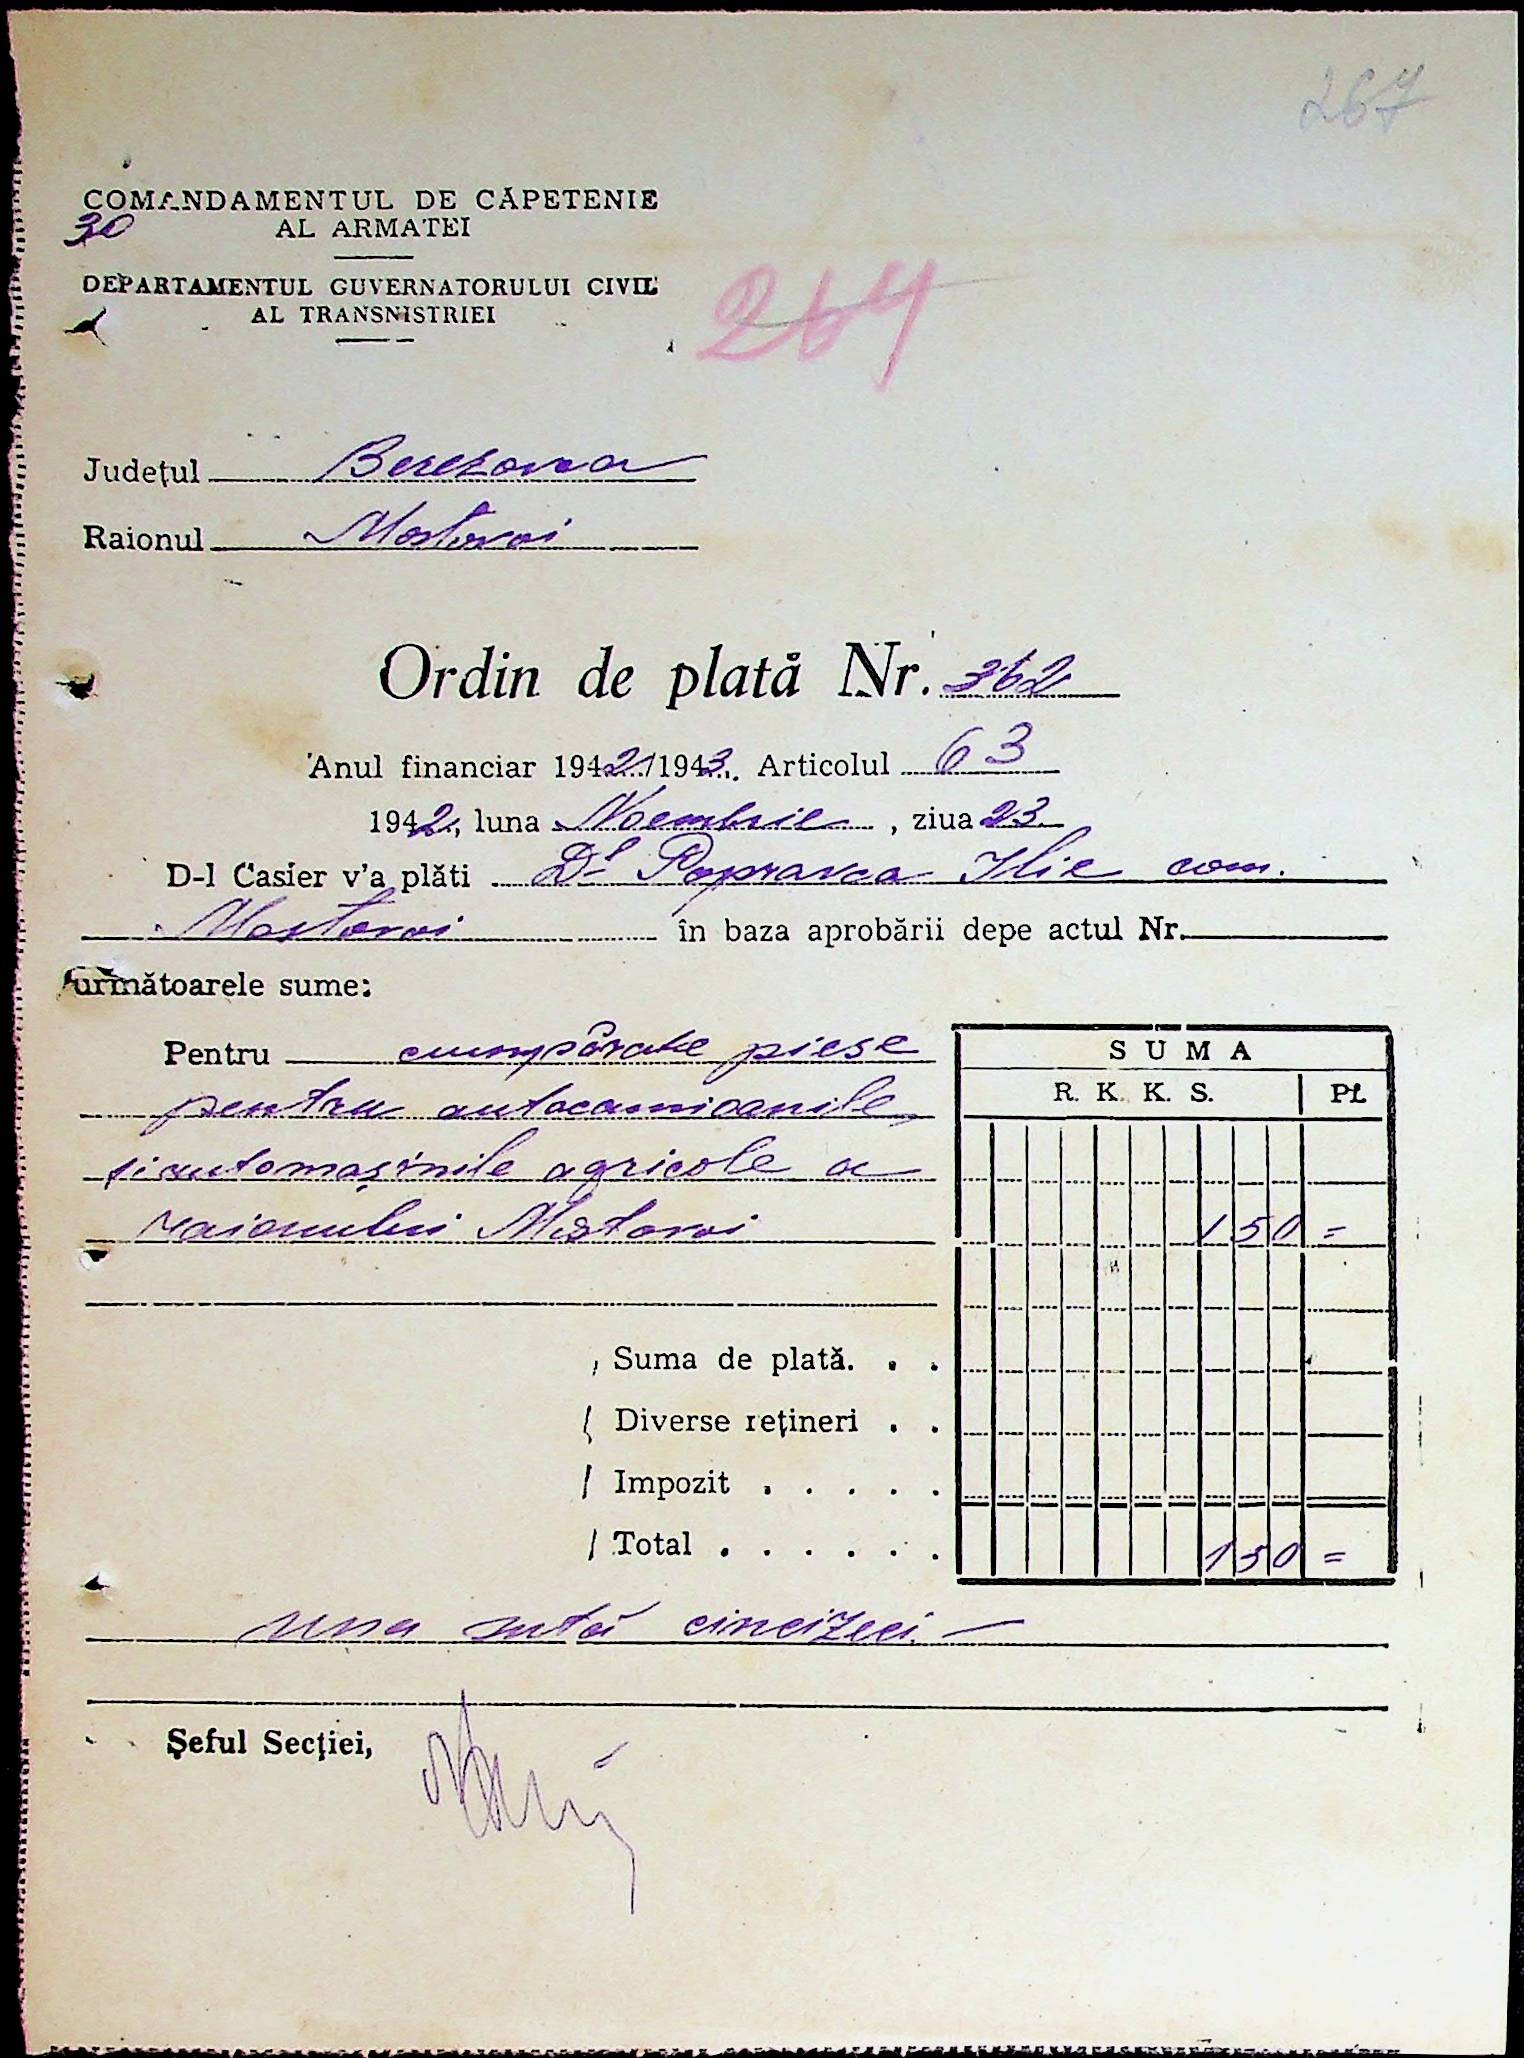 267
COMANDAMENTUL DE CĂPETENIE
30 AL ARMATEI
DEPARTAMENTUL GUVERNATORULUI CIVIL
AL TRANSNISTRIEI
264
Județul Berezovca
Raionul Mostovoi
Ordin de plată Nr. 362
Anul financiar 1942/1943. Articolul 63
1942, luna Noembrie, ziua 23
D-l Casier v'a plăti Dl Popravca Ilie com.
Mostovoi în baza aprobării depe actul Nr.
următoarele sume:
Pentru cumpărate piese
pentru autocamioanile,
și automașinile agricole a
raionului Mostovoi
SUMA
R. K. K. S. Pf.
150 =
Suma de plată. . .
Diverse rețineri . .
Impozit . . . . .
Total . . . . . . 150 =
una sută cincizeci. —
Șeful Secției,